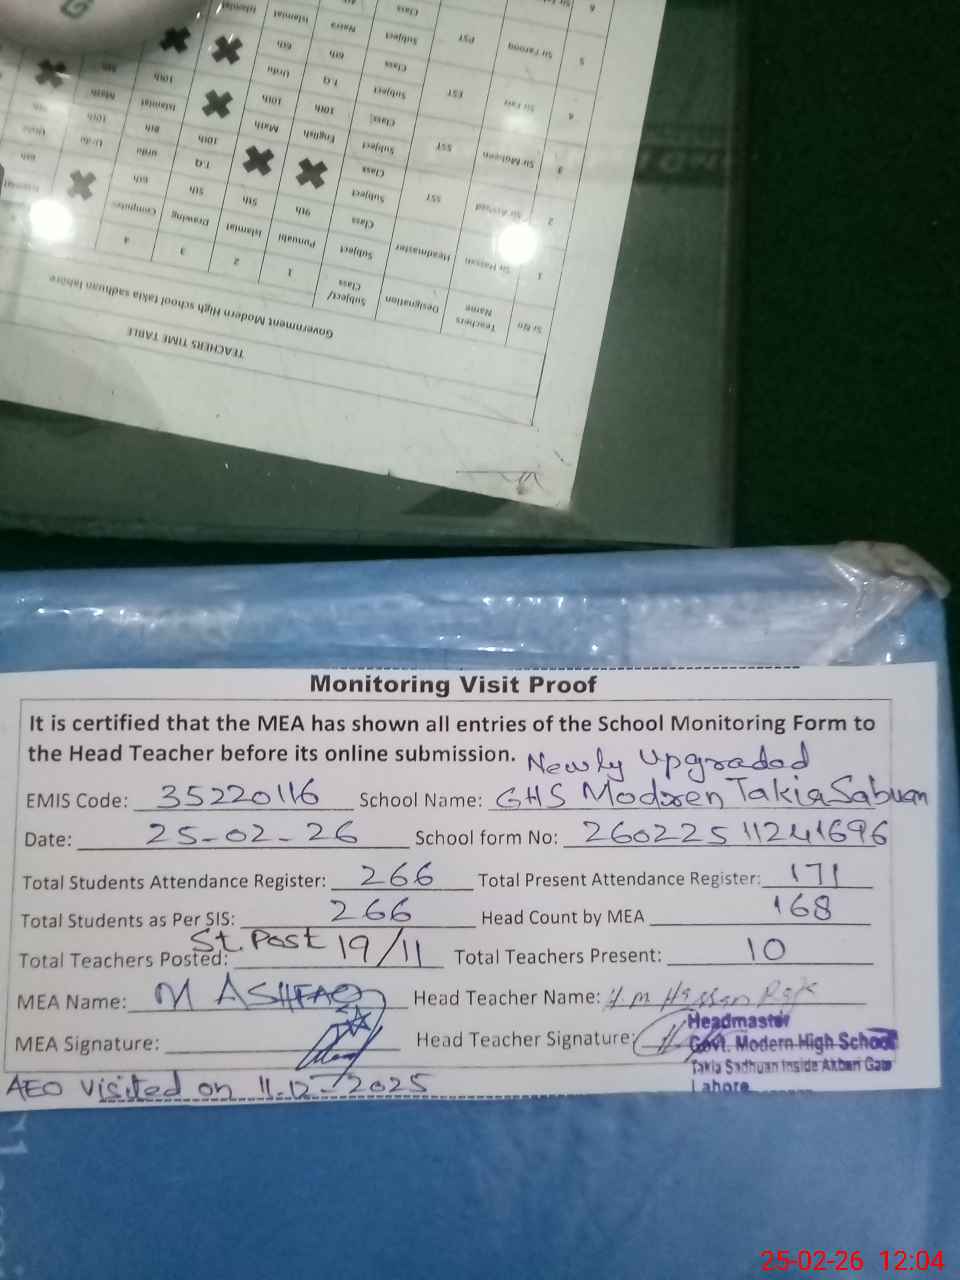 TEACHERS TIME TABLE
Government Modern High school takia sadhuan lahore
Sr No Teachers Name Designation Subject/ Class 1 2 3 4
1 Sir Hassan Headmaster Subject Punjabi Islamiat Drawing Computer
Class 9th 5th 5th 6th
2 Sir Amjad SST Subject T.Q urdu
Class 10th 8th
3 Sir Mobeen SST Subject English Math Islamiat
Class 10th 10th 10th
4 EST Subject T.Q Urdu
Class 6th 6th
5 Sir Farooq PST Subject Islamiat
Class
6
Monitoring Visit Proof
It is certified that the MEA has shown all entries of the School Monitoring Form to
the Head Teacher before its online submission. Newly Upgraded
EMIS Code: 35220116 School Name: GHS Modren Takia Sabuan
Date: 25-02-26 School form No: 26022511241696
Total Students Attendance Register: 266 Total Present Attendance Register: 171
Total Students as Per SIS: 266 Head Count by MEA 168
Total Teachers Posted: St. Post 19/11 Total Teachers Present: 10
MEA Name: M ASHFAQ Head Teacher Name: H.M Hassan Raja
MEA Signature: Head Teacher Signature:
Headmaster
Govt. Modern High School
Takia Sadhuan Inside Akbari Gate
Lahore
AEO visited on 11-12-2025
25-02-26 12:04